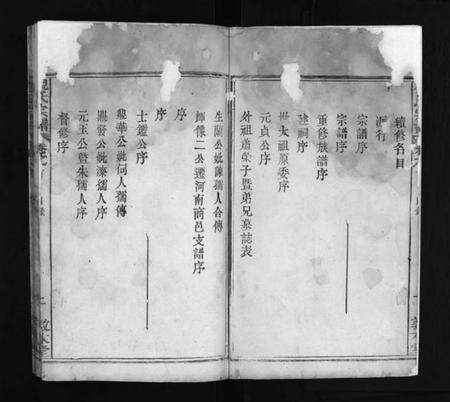 續修名目
派行
宗譜序
宗譜序
重修族譜序
建祠序
世大祖原委序
元貞公序
外祖蕭榮子暨弟兄墓誌表
生蘭公妣陳孺人合傳
輝像二公遷河南商邑支譜序
序
士鑑公序
聲華公妣何人孺傳
鼎賢公妣潦孺人序
元玉公暨朱孺人序
督修序
氏宗譜
敦本堂